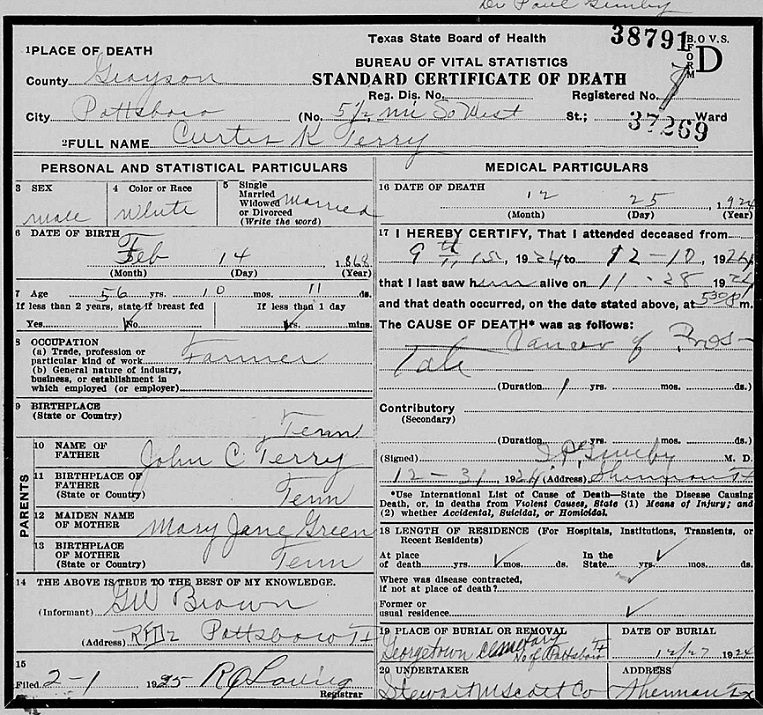 Dr Paul
Texas State Board of Health
38791
B.O.V.S.
FORM D
1 PLACE OF DEATH
BUREAU OF VITAL STATISTICS
County Grayson
STANDARD CERTIFICATE OF DEATH
Reg. Dis. No.
Registered No.
City Pottsboro (No. 5 1/2 mi So West St.; Ward
37269
2 FULL NAME Curtis K Terry
PERSONAL AND STATISTICAL PARTICULARS
3 SEX
male
4 Color or Race
White
5 Single
Married
Widowed
or Divorced
(Write the word)
Married
6 DATE OF BIRTH
Feb 14 1868
(Month) (Day) (Year)
7 Age 56 yrs. 10 mos. 11 ds.
If less than 2 years, state if breast fed
If less than 1 day
Yes No
hrs. mins.
8 OCCUPATION
(a) Trade, profession or
particular kind of work Farmer
(b) General nature of industry,
business, or establishment in
which employed (or employer)
9 BIRTHPLACE
(State or Country)
Tenn
PARENTS
10 NAME OF
FATHER John C. Terry
11 BIRTHPLACE OF
FATHER
(State or Country) Tenn
12 MAIDEN NAME
OF MOTHER Mary Jane Green
13 BIRTHPLACE
OF MOTHER
(State or Country) Tenn
14 THE ABOVE IS TRUE TO THE BEST OF MY KNOWLEDGE.
(Informant) GW Brown
(Address) RFD 2 Pottsboro Tx
15
Filed 2-1 1925
Registrar
MEDICAL PARTICULARS
16 DATE OF DEATH
12 25 1924
(Month) (Day) (Year)
17 I HEREBY CERTIFY, That I attended deceased from
9th 1924 to 12-10 1924
that I last saw him alive on 11-28 1924
and that death occurred, on the date stated above, at m.
The CAUSE OF DEATH* was as follows:
Cancer of Pros-
Tate
(Duration 1 yrs. mos. ds.)
Contributory
(Secondary)
(Duration yrs. mos. ds.)
(Signed) M. D.
12-31 1924 (Address) Sherman Tx
*Use International List of Cause of Death—State the Disease Causing
Death, or, in deaths from Violent Causes, State (1) Means of Injury; and
(2) whether Accidental, Suicidal, or Homicidal.
18 LENGTH OF RESIDENCE (For Hospitals, Institutions, Transients, or
Recent Residents)
At place
of death yrs. mos. ds.
In the
State yrs. mos. ds.
Where was disease contracted,
if not at place of death?
Former or
usual residence
19 PLACE OF BURIAL OR REMOVAL
Georgetown Cemetary
No of Pottsboro Tx
DATE OF BURIAL
12/27 1924
20 UNDERTAKER
Stewart M Scott Co
ADDRESS
Sherman Tx